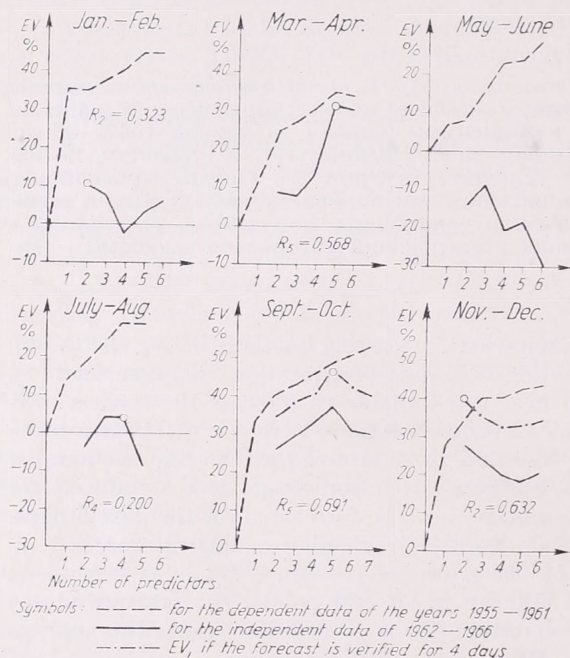 EV % Jan.-Feb.
40
30
20
10
0
-10
R₂ = 0,323
1 2 3 4 5 6
EV % Mar.-Apr.
40
30
20
10
0
-10
R₅ = 0,568
1 2 3 4 5 6
EV % May-June
20
10
0
-10
-20
-30
1 2 3 4 5 6
EV % July-Aug.
20
10
0
-10
-20
-30
R₄ = 0,200
1 2 3 4 5 6
EV % Sept.-Oct.
50
40
30
20
10
0
R₅ = 0,691
1 2 3 4 5 6 7
EV % Nov.-Dec.
50
40
30
20
10
0
R₂ = 0,632
1 2 3 4 5 6
Number of predictors
Symbols: for the dependent data of the years 1955-1961
for the independent data of 1962-1966
EV, if the forecast is verified for 4 days